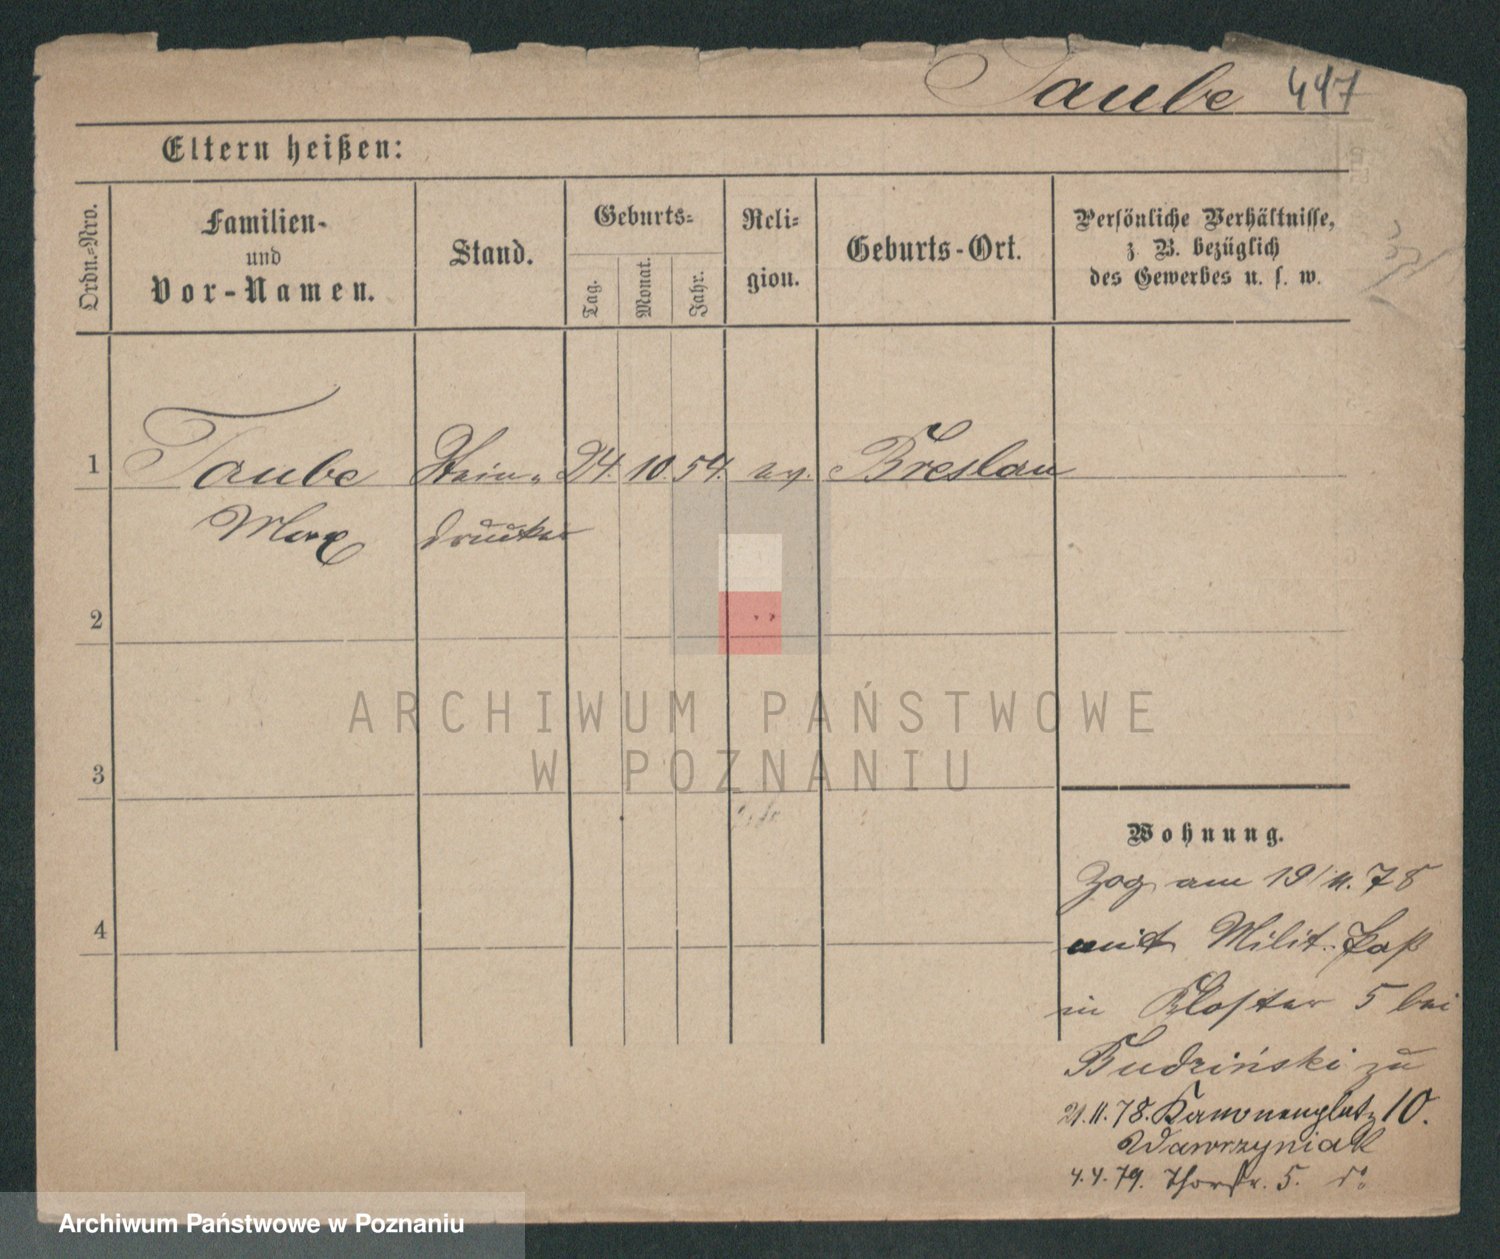 Taube 447
Eltern heißen:
Ordn.=Nro.
Familien-
und
Vor-Namen.
Stand.
Geburts=
Tag.
Monat.
Jahr.
Reli=
gion.
Geburts-Ort.
Persönliche Verhältnisse,
z. B. bezüglich
des Gewerbes u. s. w.
1 Taube Stein= 24. 10. 54. ev. Breslau
Max drucker
2
3
4
ARCHIWUM PAŃSTWOWE
W POZNANIU
Wohnung.
Zog am 19/11. 78
mit Milit. Paß
in Kloster 5 bei
Budziński zu
21.11.78. Kanonenplatz 10.
Wawrzyniak
4.4.79. Thorstr. 5. do
Archiwum Państwowe w Poznaniu